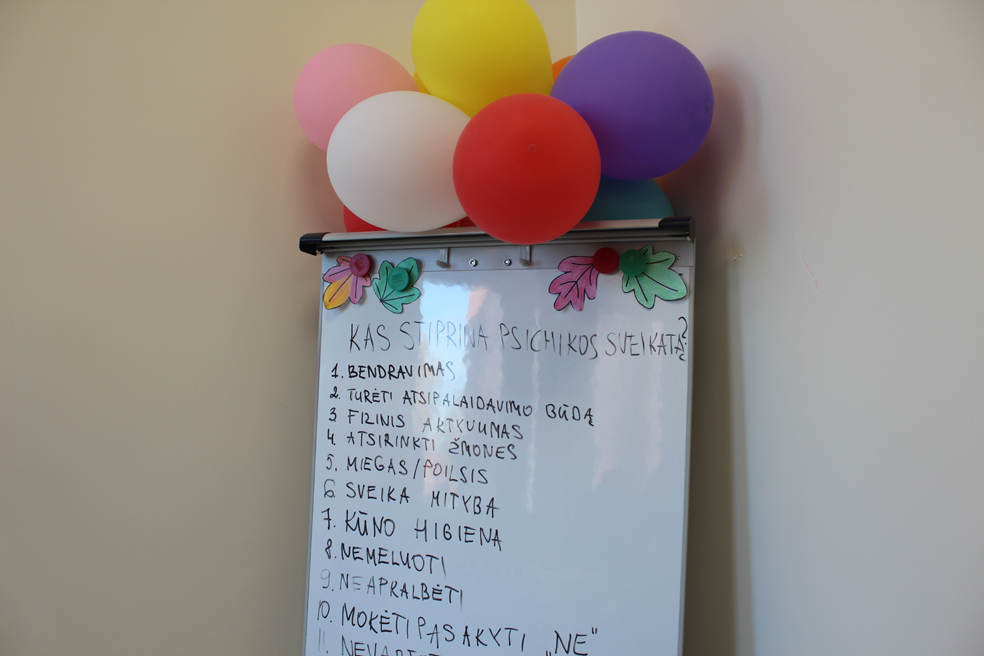 KAS STIPRINA PSICHIKOS SVEIKATĄ?
1. BENDRAVIMAS
2. TURĖTI ATSIPALAIDAVIMO BŪDĄ
3 FIZINIS AKTYVUMAS
4. ATSIRINKTI ŽMONES
5. MIEGAS/POILSIS
6 SVEIKA MITYBA
7. KŪNO HIGIENA
8. NEMELUOTI
9. NEAPKALBĖTI
10. MOKĖTI PASAKYTI „NE"
11.